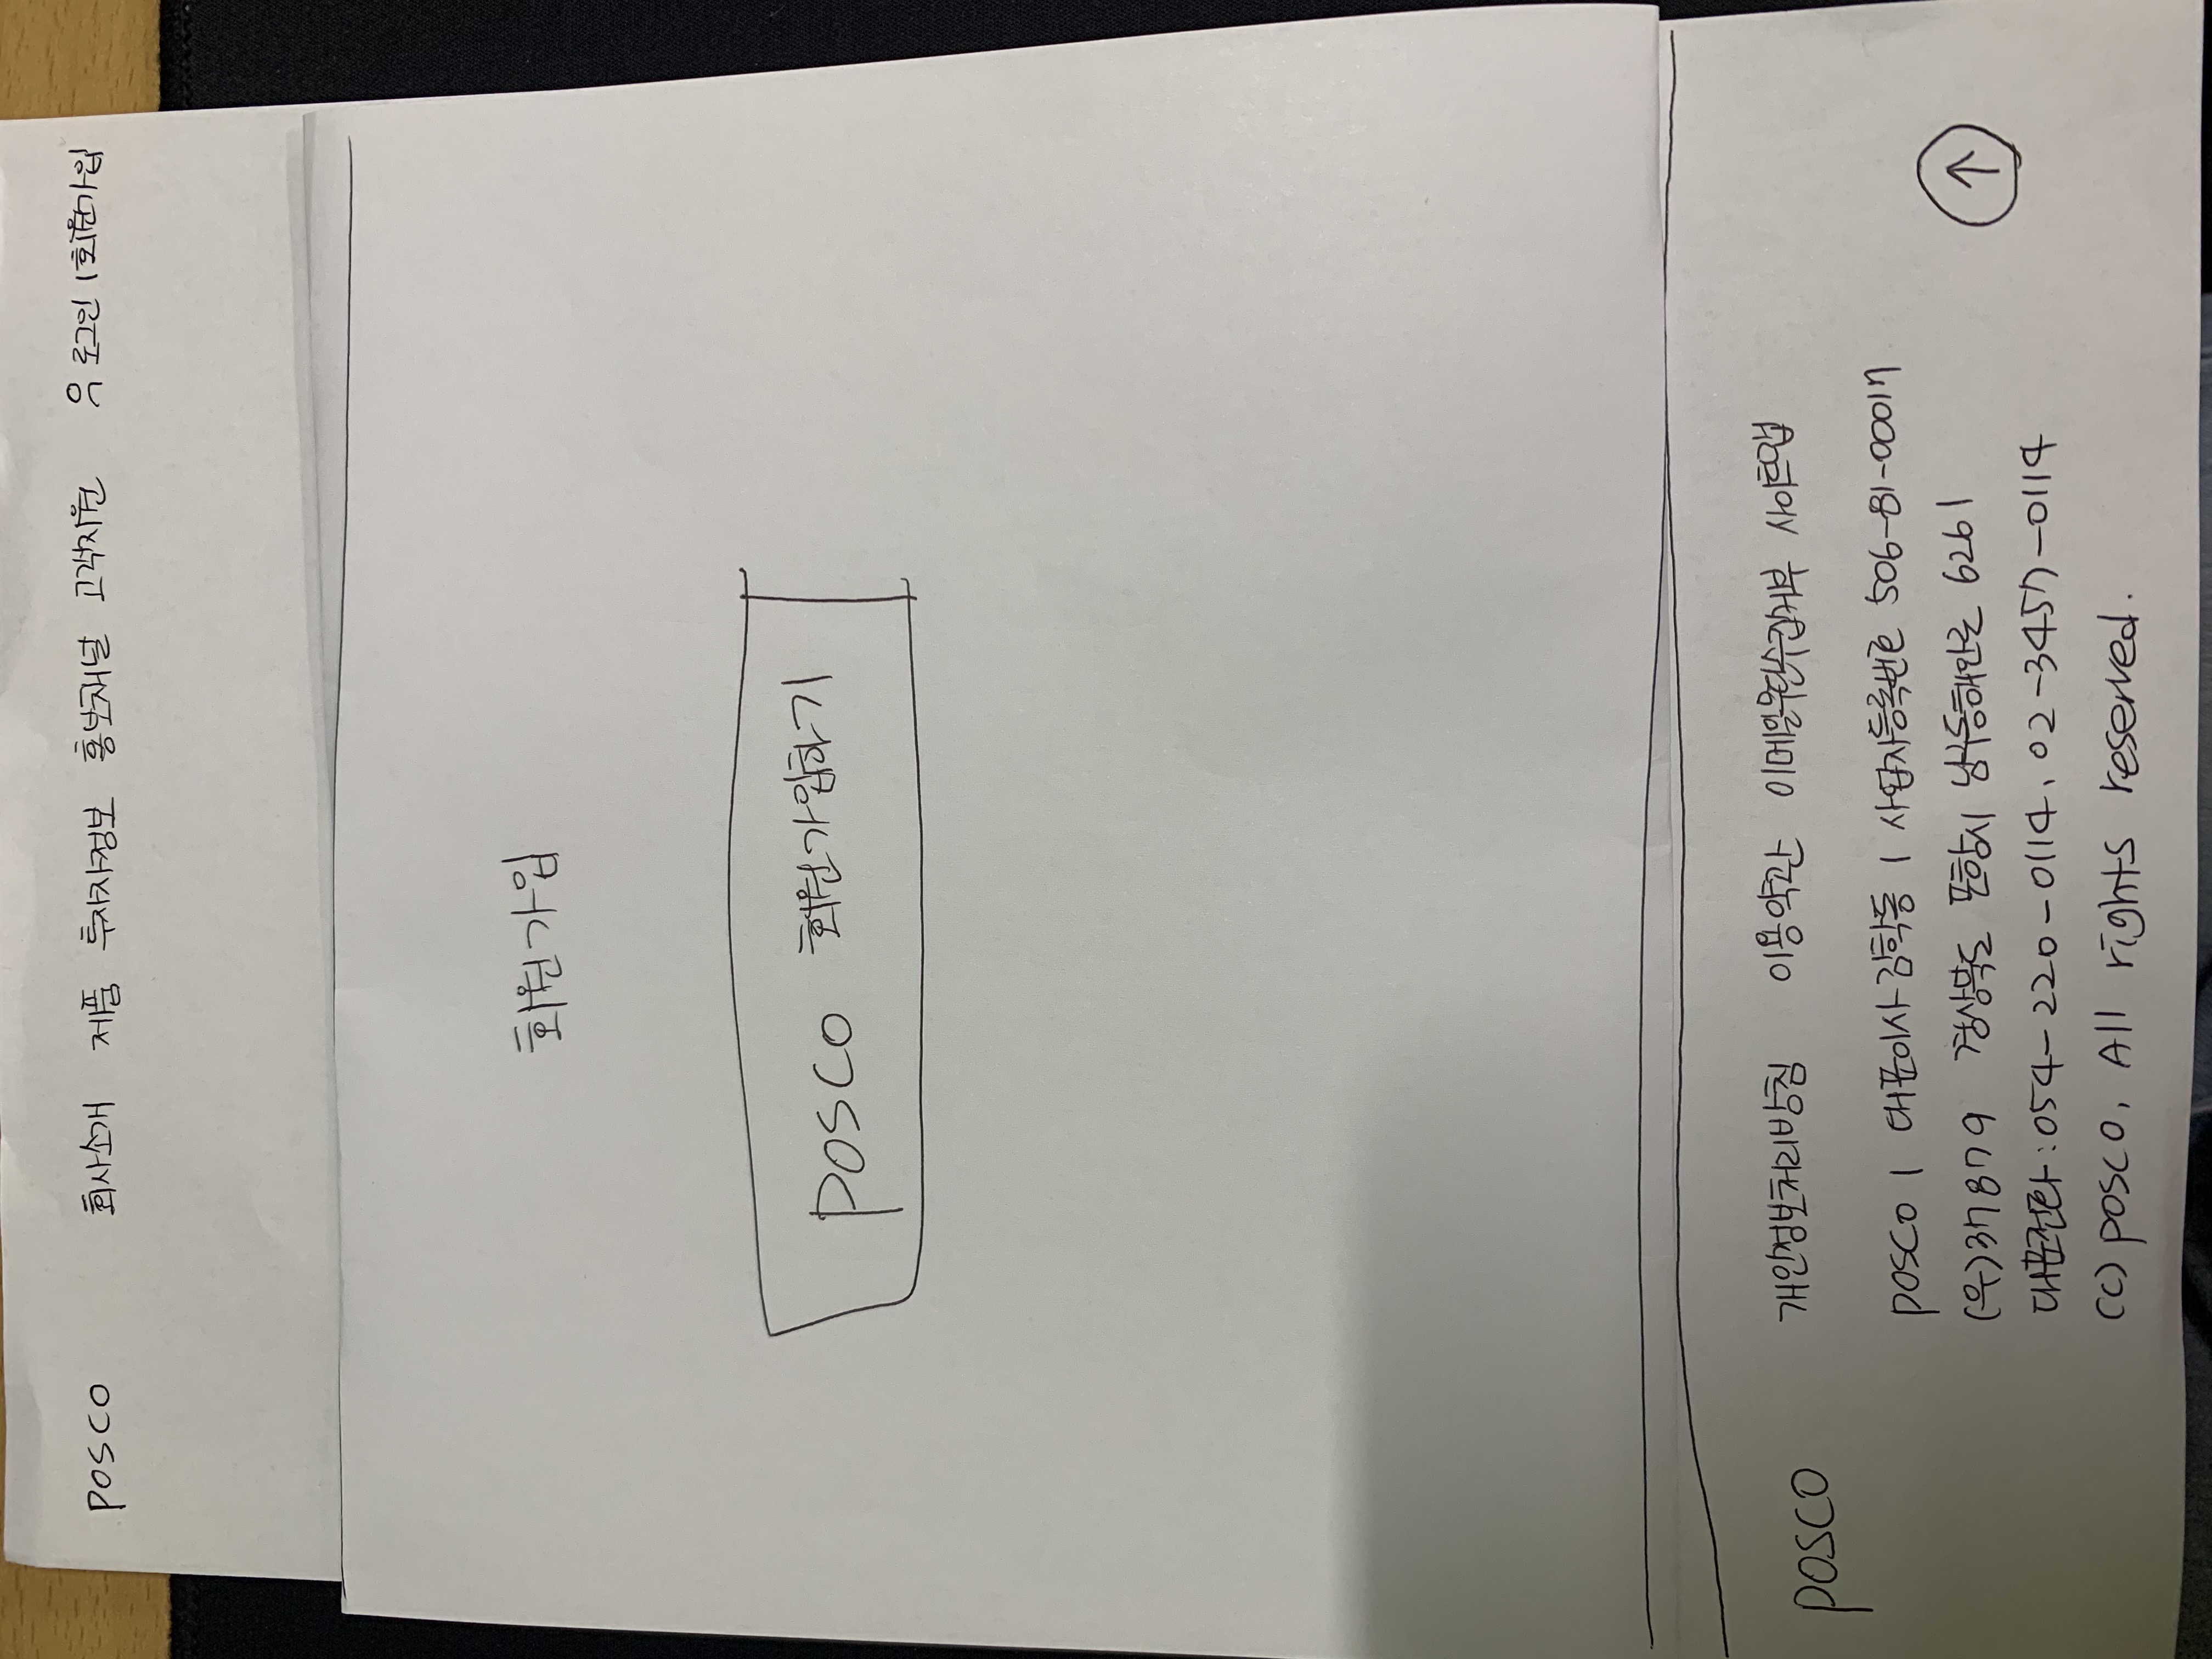 POSCO 회사소개 제품 투자자정보 홍보채널 고객지원 로그인 | 회원가입
회원가입
POSCO 회원가입하기
POSCO
개인정보처리방침 이용약관 이메일무단수집거부 사이트맵
POSCO | 대표이사 김학동 | 사업자등록번호 506-81-00017
(우)37879 경상북도 포항시 남구동해안로 6261
대표전화 : 054-220-0114, 02-3457-0114
(C) POSCO, All rights reserved.